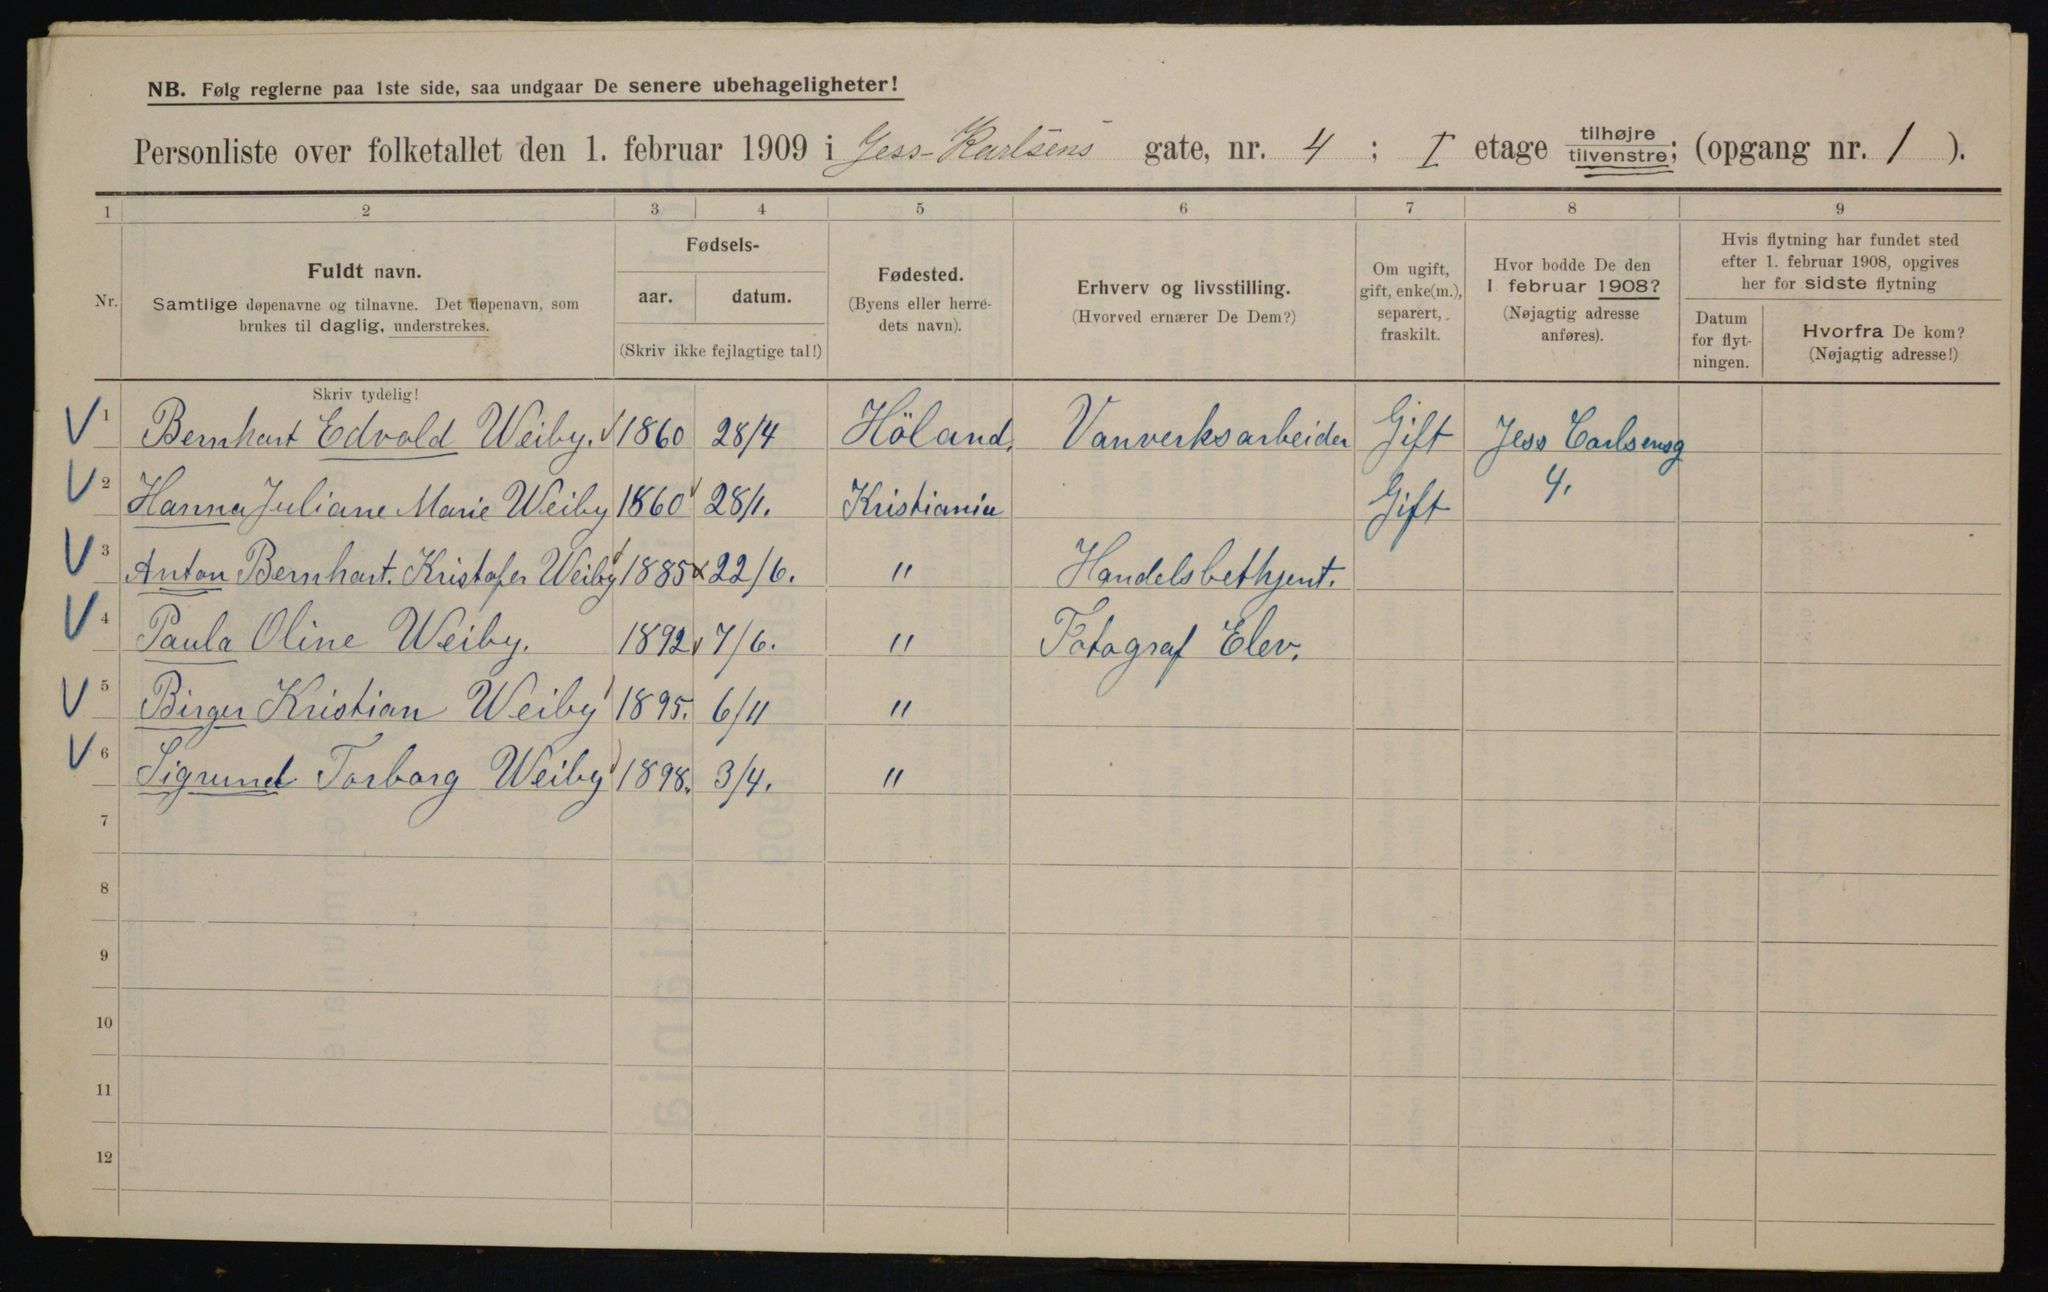 NB. Følg reglerne paa 1ste side, saa undgaar De senere ubehageligheter!
Personliste over folketallet den 1. februar 1909 i Jess-Karlsens gate, nr. 4 ; I etage tilhøjre tilvenstre; (opgang nr. 1 ).
1 2 3 4 5 6 7 8 9
Nr.
Fuldt navn.
Samtlige døpenavne og tilnavne. Det døpenavn, som
brukes til daglig, understrekes.
Fødsels-
aar. datum.
(Skriv ikke fejlagtige tal!)
Fødested.
(Byens eller herre-
dets navn).
Erhverv og livsstilling.
(Hvorved ernærer De Dem?)
Om ugift,
gift, enke(m.),
separert,
fraskilt.
Hvor bodde De den
1 februar 1908?
(Nøjagtig adresse
anføres).
Hvis flytning har fundet sted
efter 1. februar 1908, opgives
her for sidste flytning
Datum
for flyt-
ningen.
Hvorfra De kom?
(Nøjagtig adresse!)
Skriv tydelig!
V 1 Bernhart Edvald Weiby. 1860 28/4 Höland. Vanverksarbeider Gift Jess Carlsensg
V 2 Hanna Juliane Marie Weiby 1860 28/1. Kristiania Gift 4.
V 3 Anton Bernhart. Kristofer Weiby 1885 22/6. " Handelsbethjent.
V 4 Paula Oline Weiby. 1892 7/6. " Fotograf Elev.
V 5 Birger Kristian Weiby 1895. 6/11 "
V 6 Sigrund Torborg Weiby 1898. 3/4. "
7
8
9
10
11
12